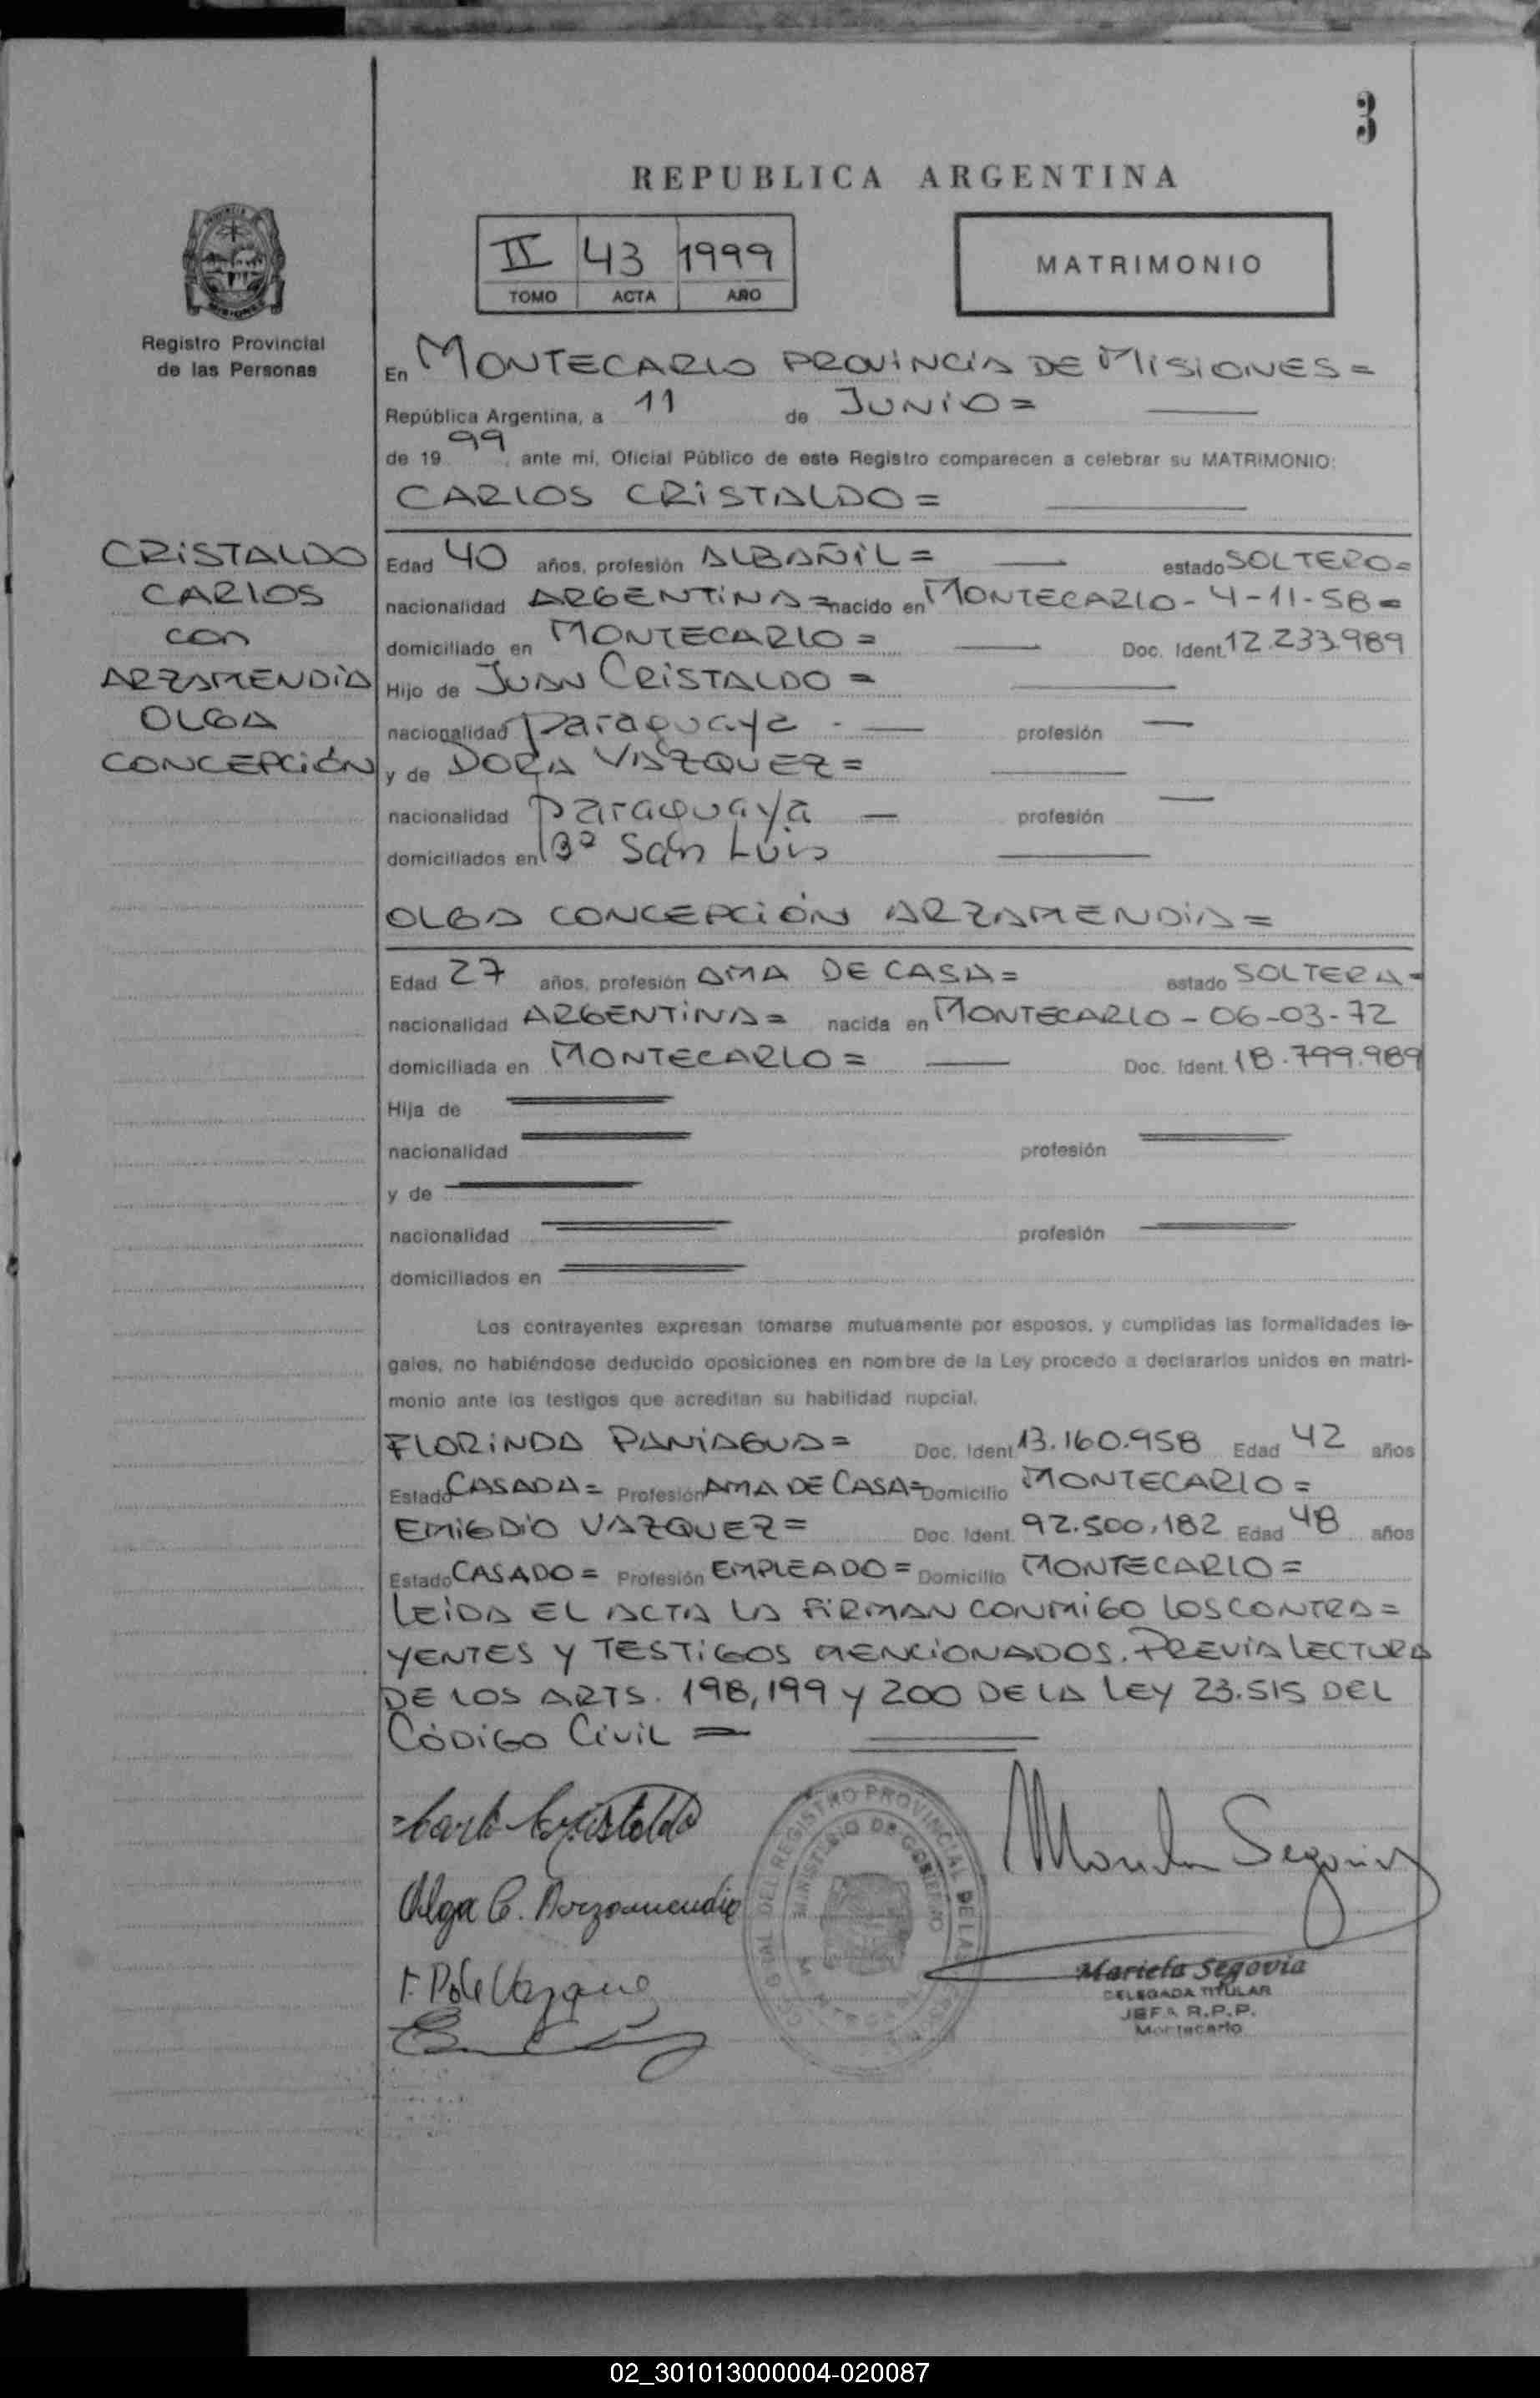 3
REPUBLICA ARGENTINA
II 43 1999
TOMO ACTA AÑO
MATRIMONIO
Registro Provincial
de las Personas
En MONTECARLO PROVINCIA DE MISIONES =
República Argentina, a 11 de JUNIO =
de 19 99, ante mí, Oficial Público de este Registro comparecen a celebrar su MATRIMONIO:
CARLOS CRISTALDO =
CRISTALDO
CARLOS
con
ARZAMENDIA
OLGA
CONCEPCIÓN
Edad 40 años, profesión ALBAÑIL = estado SOLTERO =
nacionalidad ARGENTINA = nacido en MONTECARLO - 4-11-58 =
domiciliado en MONTECARLO = Doc. Ident. 12.233.989
Hijo de JUAN CRISTALDO =
nacionalidad paraguaya - profesión —
y de DORA VAZQUEZ =
nacionalidad paraguaya — profesión —
domiciliados en Bº San Luis
OLGA CONCEPCIÓN ARZAMENDIA =
Edad 27 años, profesión AMA DE CASA = estado SOLTERA =
nacionalidad ARGENTINA = nacida en MONTECARLO - 06-03-72
domiciliada en MONTECARLO = Doc. Ident. 18.799.989
Hija de
nacionalidad profesión
y de
nacionalidad profesión
domiciliados en
Los contrayentes expresan tomarse mutuamente por esposos, y cumplidas las formalidades le-
gales, no habiéndose deducido oposiciones en nombre de la Ley procedo a declararlos unidos en matri-
monio ante los testigos que acreditan su habilidad nupcial.
FLORINDA PANIAGUA = Doc. Ident. 13.160.958 Edad 42 años
Estado CASADA = Profesión AMA DE CASA = Domicilio MONTECARLO =
EMIGDIO VAZQUEZ = Doc. Ident. 92.500.182 Edad 48 años
Estado CASADO = Profesión EMPLEADO = Domicilio MONTECARLO =
LEIDA EL ACTA LA FIRMAN CONMIGO LOS CONTRA =
YENTES Y TESTIGOS MENCIONADOS. PREVIA LECTURA
DE LOS ARTS. 198, 199 Y 200 DE LA LEY 23.515 DEL
CÓDIGO CIVIL =
Carlos Cristaldo
Olga C. Arzamendia
F. P de Vazquez
REGISTRO PROVINCIAL DE LAS
MINISTERIO DE GOBIERNO
Mariela Segovia
Mariela Segovia
DELEGADA TITULAR
JEFA R.P.P.
Montecarlo
02_301013000004-020087